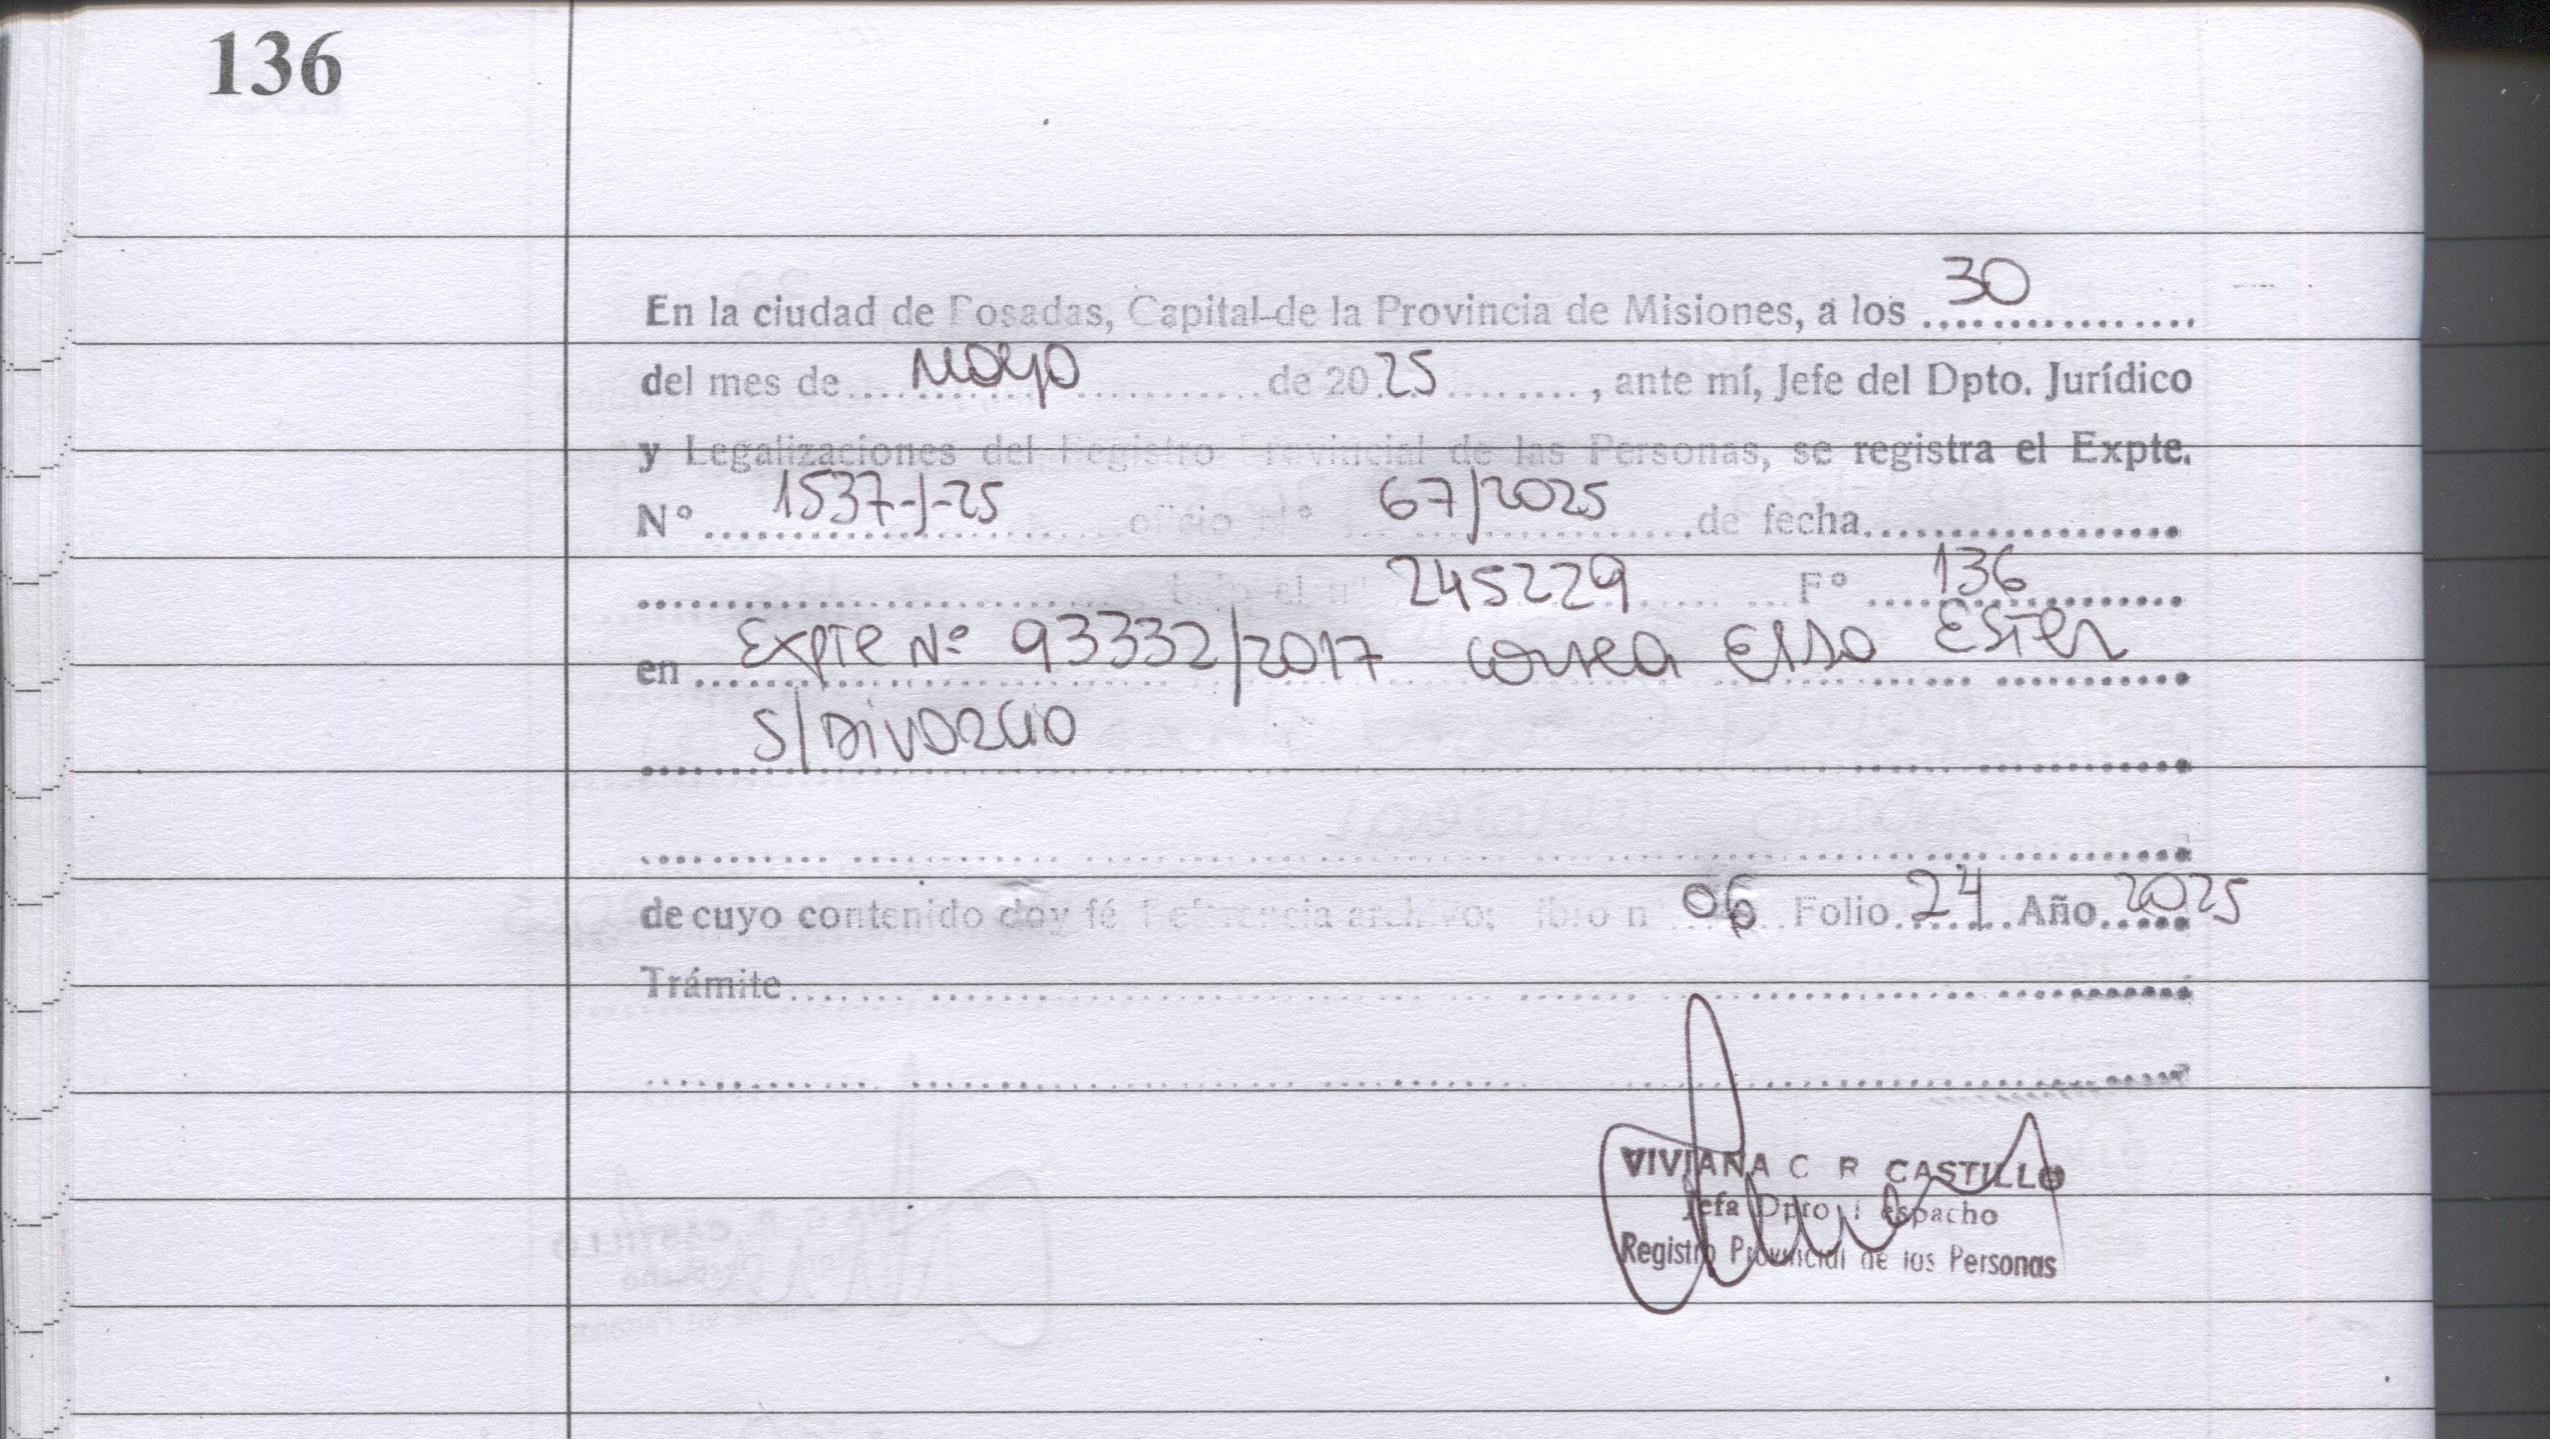 136
En la ciudad de Posadas, Capital de la Provincia de Misiones, a los 30
del mes de Mayo de 2025, ante mí, Jefe del Dpto. Jurídico
y Legalizaciones del Registro Provincial de las Personas, se registra el Expte.
Nº 1537-J-25 oficio Nº 67/2025 de fecha
bajo el nº 245229 Fº 136
en Expte Nº 93332/2017 Correa Elsa Ester
S/Divorcio
de cuyo contenido doy fé Referencia archivo: libro nº 06 Folio 24 Año 2025
Trámite
VIVIANA C R CASTILLO
Jefa Dpto Despacho
Registro Provincial de las Personas